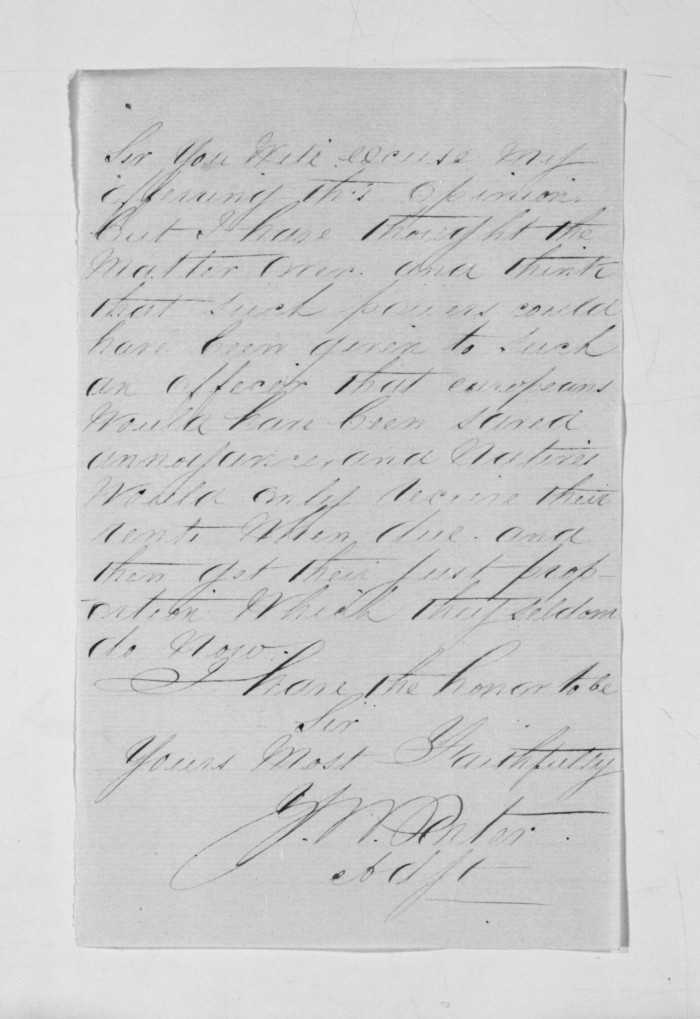 Sir You Will excuse my
offering this opinion.
but I have thought the
Matter over. and think
that such powers could
have been given to such
an officer that europeans
Would have been saved
annoyance, and Natives
Would only receive their
rents When due. and
then get their just prop-
-ortion Which they seldom
do Now.
I have the honor to be
Sir
Yours Most Faithfully
W. Porter
Adjt